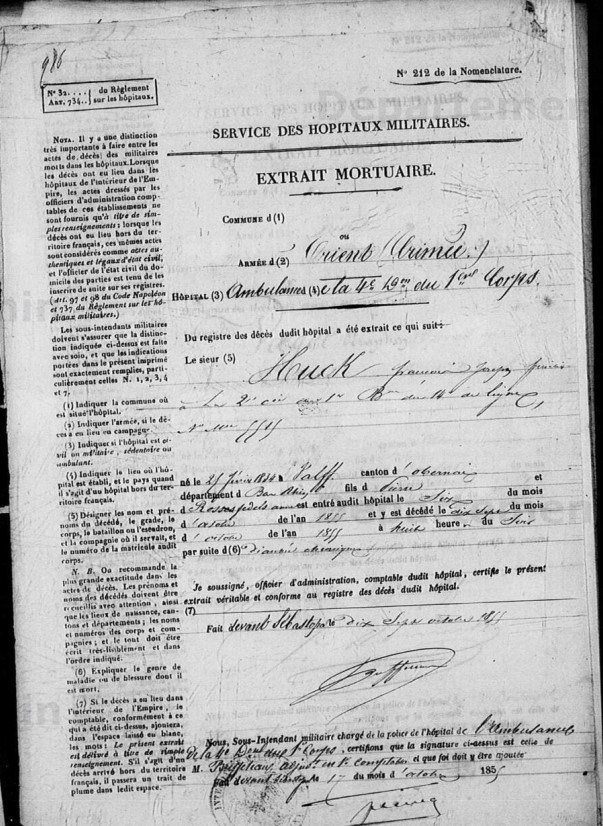 986
N° 212 de la Nomenclature.
N° 32.... du Règlement
ART. 734.. sur les hôpitaux.
SERVICE DES HOPITAUX MILITAIRES.
EXTRAIT MORTUAIRE.
NOTA. Il y a une distinction
très importante à faire entre les
actes de décès des militaires
morts dans les hôpitaux. Lorsque
les décès ont eu lieu dans les
hôpitaux de l'intérieur de l'Em-
pire, les actes dressés par les
officiers d'administration comp-
tables de ces établissements ne
sont fournis qu'à titre de sim-
ples renseignements : lorsque les
décès ont eu lieu hors du ter-
ritoire français, ces mêmes actes
sont considérés comme actes au-
thentiques et légaux d'état civil,
et l'officier de l'état civil du do-
micile des parties est tenu de les
inscrire de suite sur ses registres.
(Art. 97 et 98 du Code Napoléon
et 737 du Règlement sur les hô-
pitaux militaires.)
Les sous-intendants militaires
doivent s'assurer que la distinc-
tion indiquée ci-dessus est faite
avec soin, et que les indications
portées dans le présent imprimé
sont exactement remplies, parti-
culièrement celles N. 1, 2, 3, 4
et 7.
(1) Indiquer la commune où
est situé l'hôpital.
(2) Indiquer l'armée, si le dé-
cès a eu lieu en campagne.
(3) Indiquer si l'hôpital est ci-
vil ou militaire, sédentaire ou
ambulant.
(4) Indiquer le lieu où l'hô-
pital est établi, et le pays quand
il s'agit d'un hôpital hors du ter-
ritoire français.
(5) Désigner les nom et pré-
noms du décédé, le grade, le
corps, le bataillon ou l'escadron,
et la compagnie où il servait, et
le numéro de la matricule audit
corps.
N. B. On recommande la
plus grande exactitude dans les
actes de décès. Les prénoms et
noms des décédés doivent être
recueillis avec attention, ainsi
que les lieux de naissance, can-
tons et départements ; les noms
et numéros des corps et com-
pagnies ; et le tout doit être
écrit très-lisiblement et dans
l'ordre indiqué.
(6) Expliquer le genre de
maladie ou de blessure dont il
est mort.
(7) Si le décès a eu lieu dans
l'intérieur de l'Empire, le
comptable, conformément à ce
qui a été dit ci-dessus, ajoutera,
dans l'espace laissé en blanc,
les mots : Le présent extrait
est délivré à titre de simple
renseignement. S'il s'agit d'un
décès arrivé hors du territoire
français, il passera un trait de
plume dans ledit espace.
COMMUNE d (1)
ou
ARMÉE d (2) Orient (Crimée)
HÔPITAL (3) Ambulances (4) de la 4e Dion du 1er Corps.
Du registre des décès dudit hôpital a été extrait ce qui suit :
Le sieur (5) Huck
né le 25 février à Valff canton d'obernai
département d Bas Rhin fils d
et d est entré audit hôpital le Six du mois
d'octobre de l'an 1855 et y est décédé le dix Sept du mois
d'octobre de l'an 1855 à huit heures du Soir
par suite d (6) diarrhée chronique
Je soussigné, officier d'administration, comptable dudit hôpital, certifie le présent
extrait véritable et conforme au registre des décès dudit hôpital.
(7)
Fait devant Sébastopol le dix Sept octobre 1855
Nous, Sous-Intendant militaire chargé de la police de l'hôpital de l'Ambulance
de la 4e Dion du 1er Corps, certifions que la signature ci-dessus est celle de
M. adjudt en 1er comptable et que foi doit y être ajoutée
Fait devant le 17 du mois d'octobre 1855